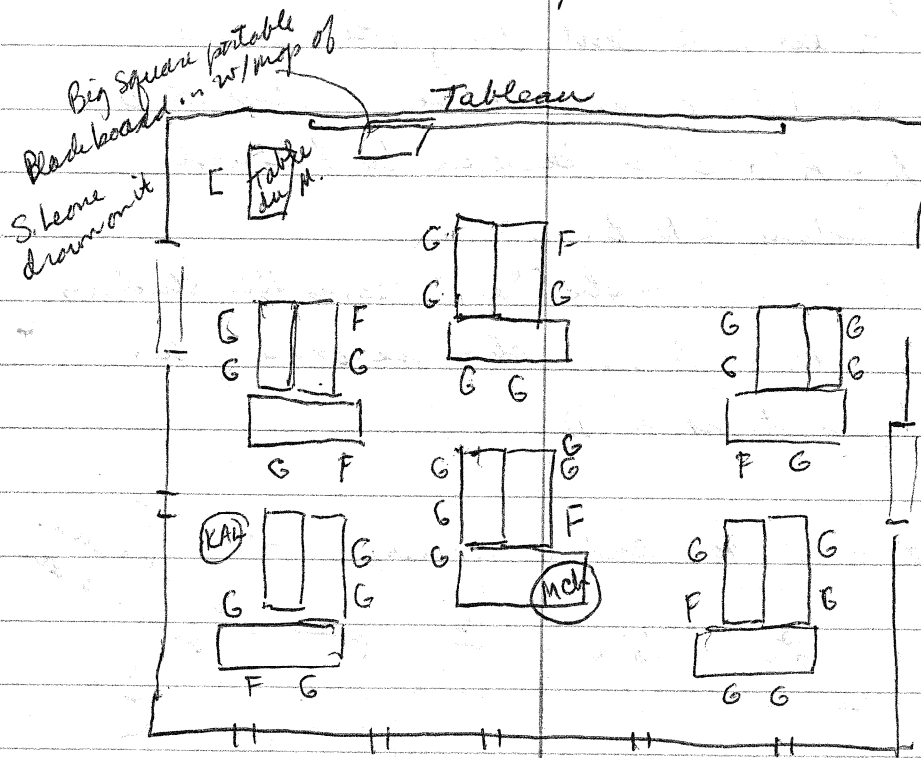 Big square portable
Blackboard in w/map of
S. Leone
drawn on it
Tableau
Table
du M.
G F
G G
G G
G F
G G
G F
G G
G G
F G
G G
G
G F
G
KAL
G
G G
F G
MCh
G G
F G
G G